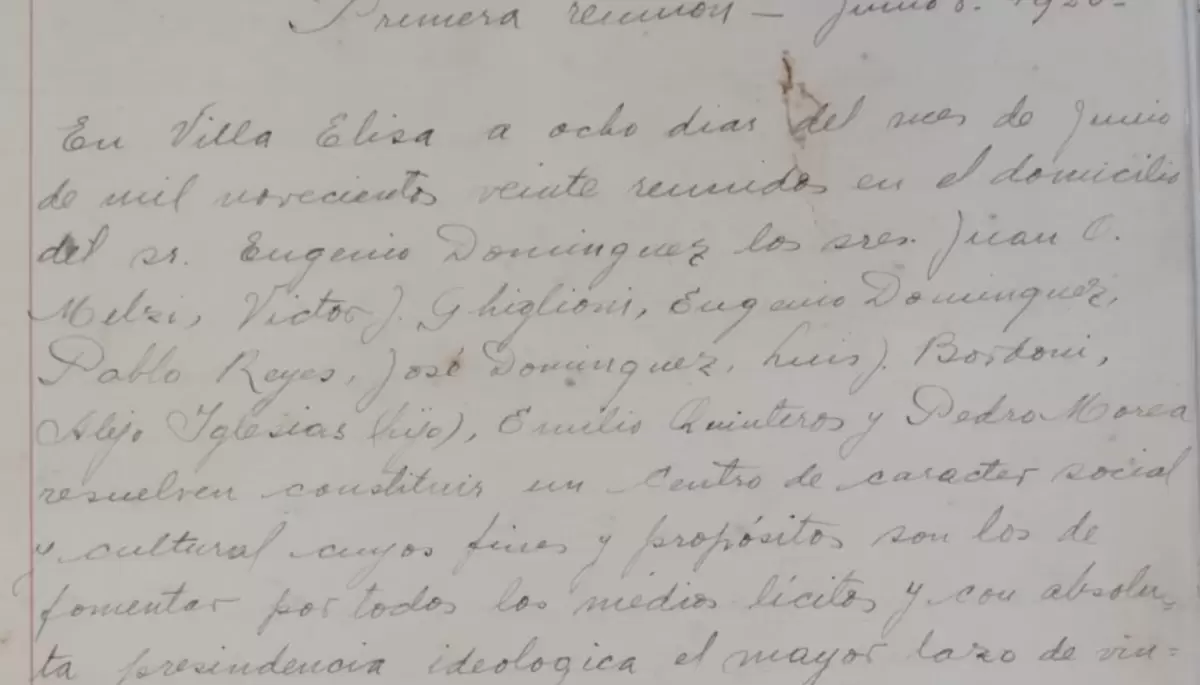 Primera reunión — Junio 8. 1920-
En Villa Elisa a ocho dias del mes de Junio
de mil novecientos veinte reunidos en el domicilio
del sr. Eugenio Dominguez los sres. Juan C.
Melzi, Victor J. Ghiglioni, Eugenio Dominguez,
Pablo Reyes, José Dominguez, Luis J. Bordoni,
Alejo Iglesias (hijo), Emilio Quinteros y Pedro Morea
resuelven constituir un Centro de caracter social
y cultural cuyos fines y propósitos son los de
fomentar por todos los medios lícitos y con absolu-
ta presindencia ideologica el mayor lazo de vin=